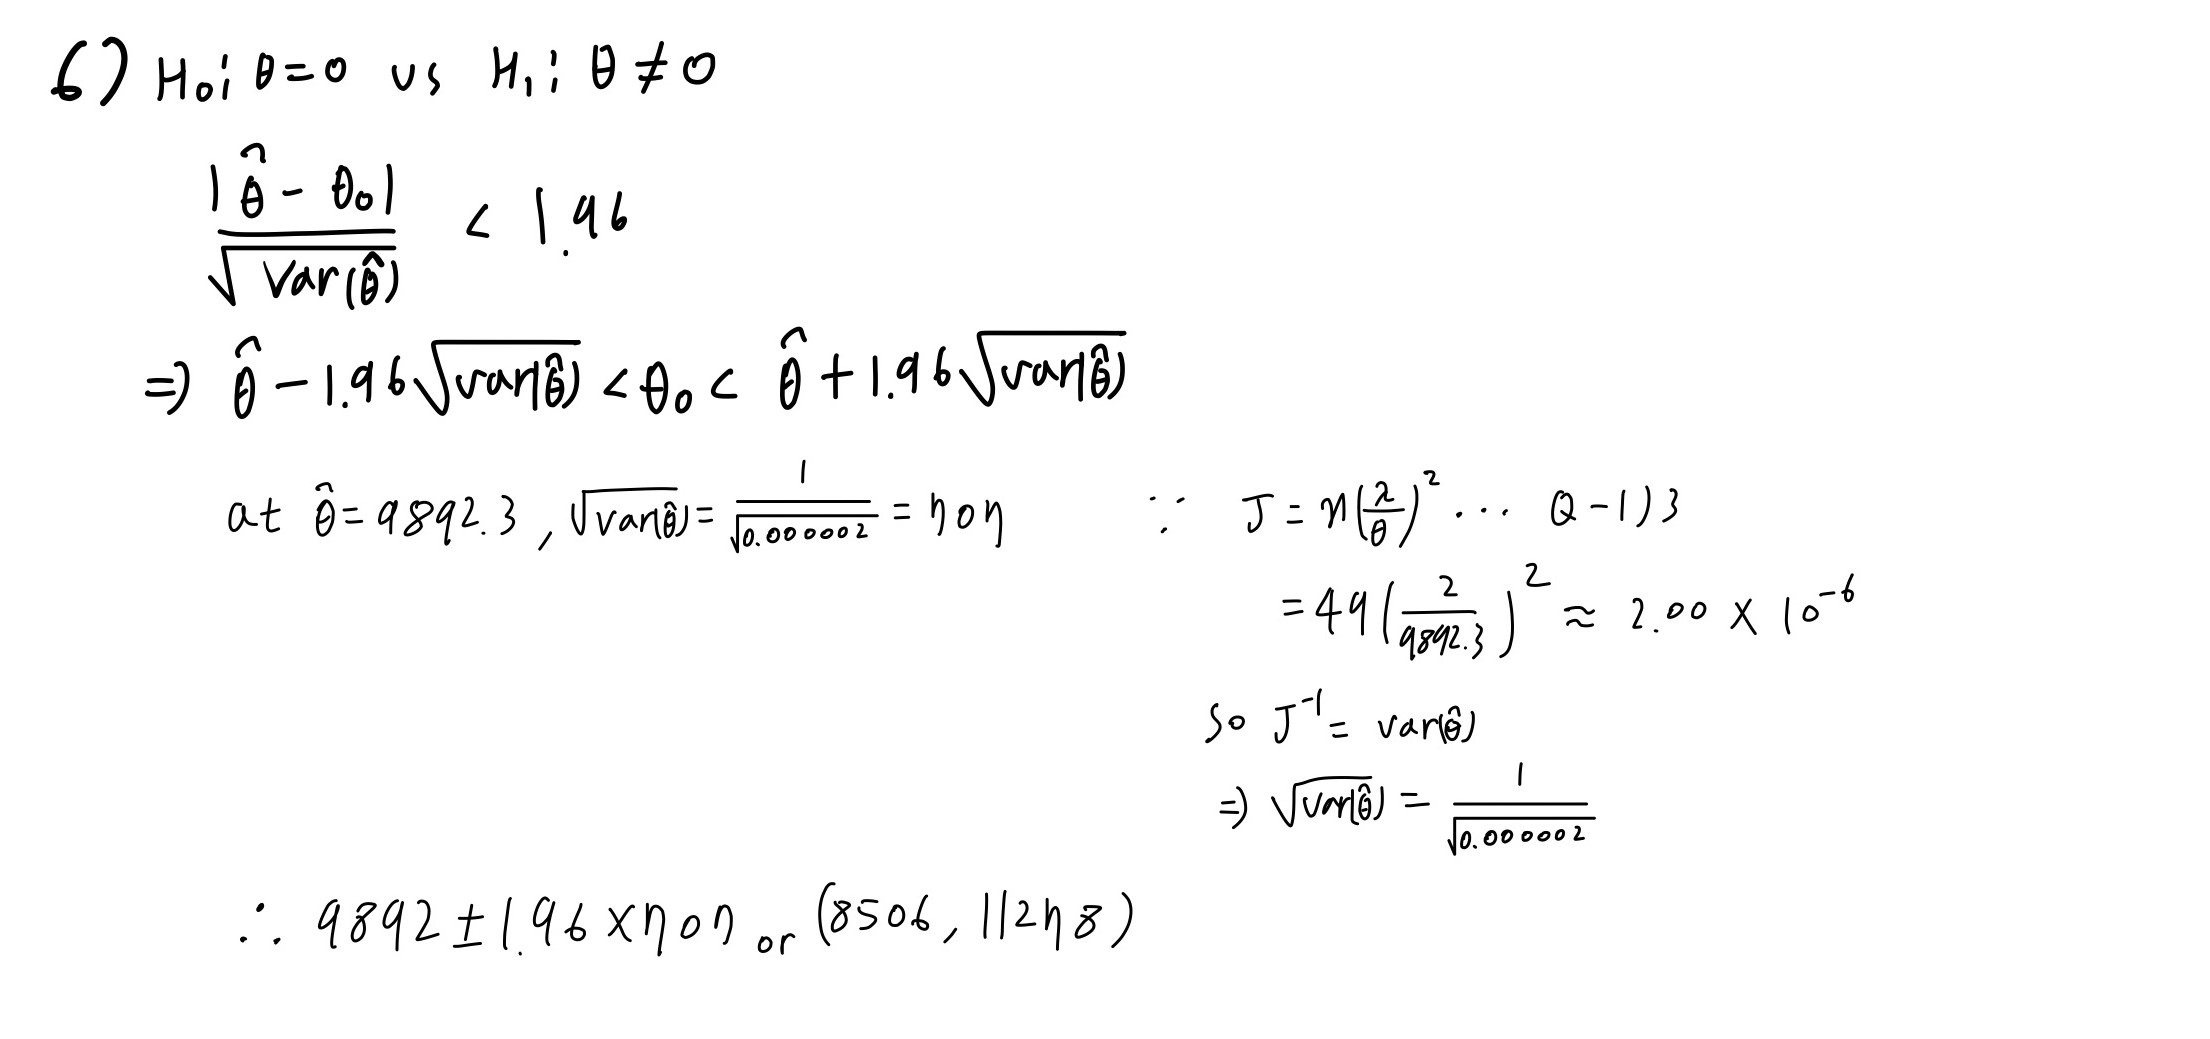 6) H₀: θ=0 vs H₁: θ≠0
|θ̂ - θ₀| / √Var(θ̂) < 1.96
⇒ θ̂ - 1.96√var(θ̂) < θ₀ < θ̂ + 1.96√var(θ̂)
at θ̂ = 9892.3, √var(θ̂) = 1/√0.000002 = 707 ∵ J = n(λ/θ)² ... Q-1)3
= 49(2/9892.3)² ≈ 2.00 × 10⁻⁶
so J⁻¹ = var(θ̂)
⇒ √var(θ̂) = 1/√0.000002
∴ 9892 ± 1.96 × 707 or (8506, 11278)